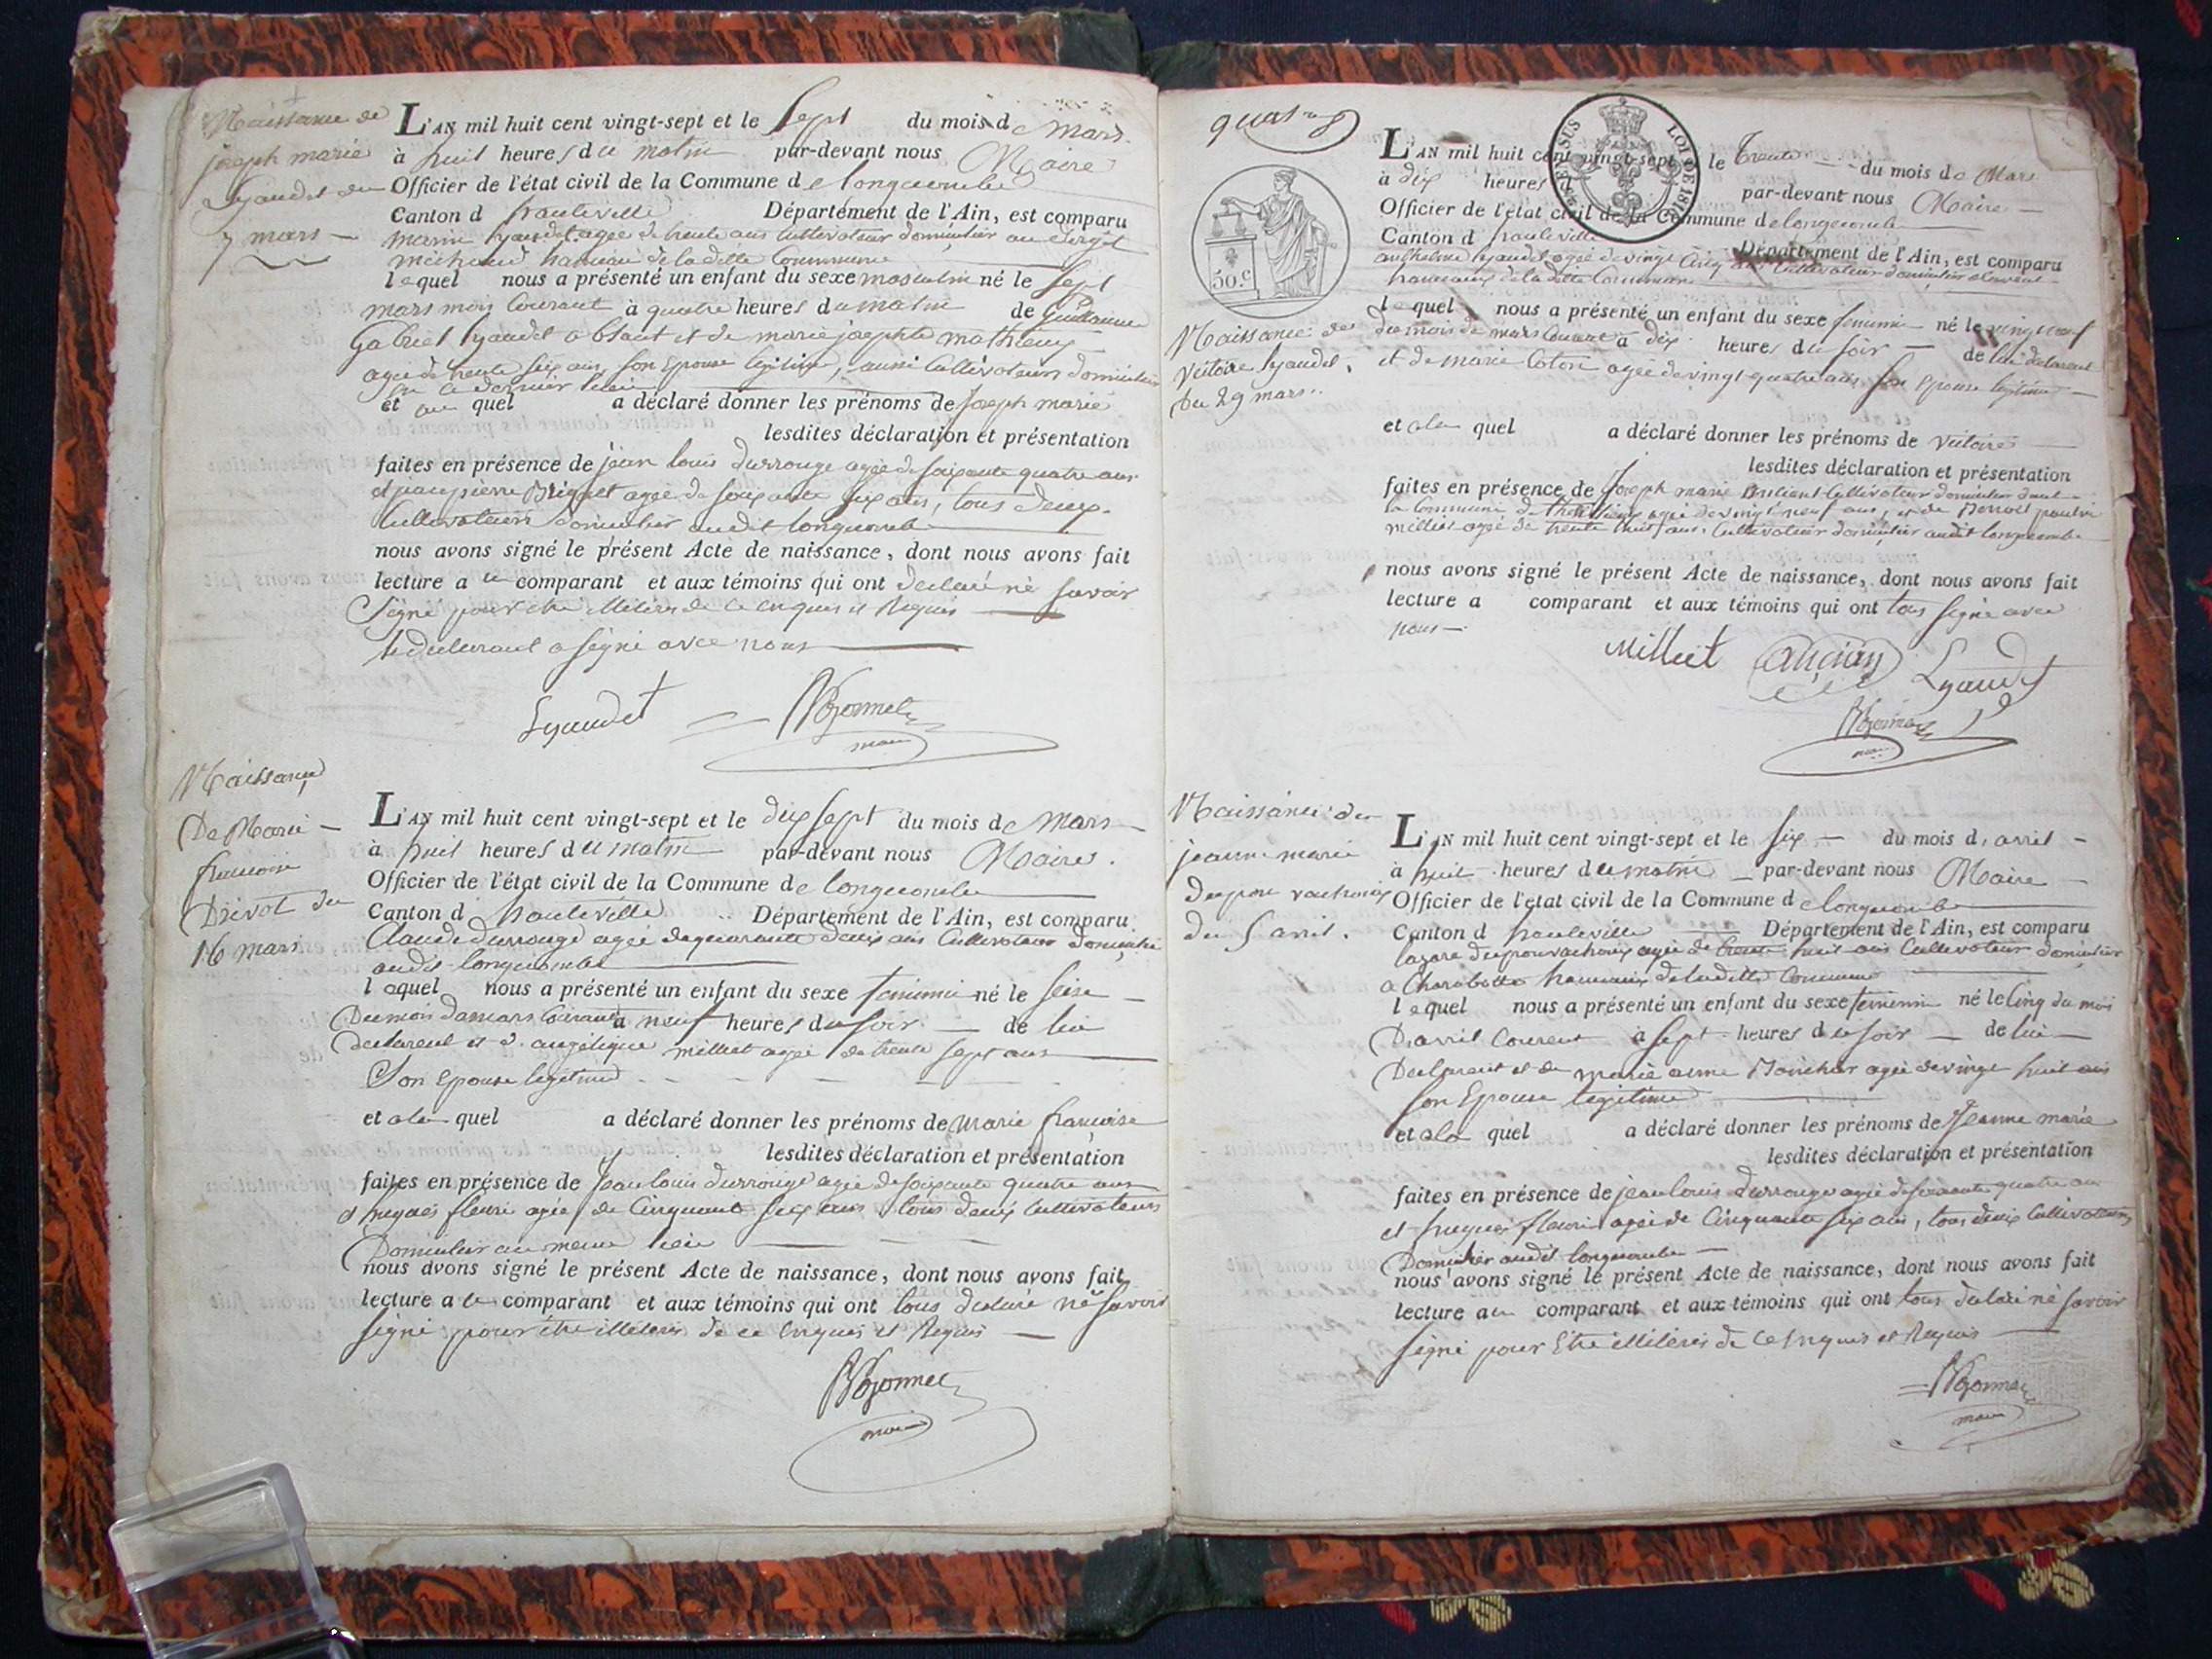 Naissance de
joseph marie
Lyaudet du
7 mars
L'AN mil huit cent vingt-sept et le Sept du mois de Mars
à huit heures du matin par-devant nous Maire
Officier de l'état civil de la Commune de longecombe
Canton d hauteville Département de l'Ain, est comparu
Marin Lyaudet agée de trente ans Cultivateur domicilier au
michaud hameau de la ditte Commune
lequel nous a présenté un enfant du sexe masculin né le Sept
mars mois Courant à quatre heures du matin de Guillaume
Gabriel lyaudet absant et de marie josephte mathieux
agée de trente six ans, son Epouse légitime, aussi Cultivateurs domicilier
en ce dernier lieu
et au quel a déclaré donner les prénoms de Joseph marie
lesdites déclaration et présentation
faites en présence de jean louis durrouge agée de soixante quatre ans
et jean pierre agée de soixante six ans, tous deux
Cultivateurs domicilier audit longecombe
nous avons signé le présent Acte de naissance, dont nous avons fait
lecture a u comparant et aux témoins qui ont declaré né savoir
Signé pour être illitérés de ce enquis et Requis
le declarant a signé avec nous
Lyaudet
maire
Naissance
De Marie
francoise
Drivot du
16 mars
L'AN mil huit cent vingt-sept et le dix sept du mois de Mars
à huit heures du matin par-devant nous Maire.
Officier de l'état civil de la Commune de longecombe
Canton d hauteville Département de l'Ain, est comparu
Claude durrouge agée de quarante deux ans Cultivateur domicilié
audit longecombe
laquel nous a présenté un enfant du sexe feminin né le seise
Du mois de mars Courant à neuf heures du soir de lui
declarent et d. angélique milliet agée de trente sept ans
Son Epouse legitime
et a la quel a déclaré donner les prénoms de Marie francoise
lesdites déclaration et présentation
faites en présence de Jean louis durrouge agée de soixante quatre ans
et hugues fleuri agée de Cinquante six ans tous deux Cultivateurs
Domicilier au meme lieu
nous avons signé le présent Acte de naissance, dont nous avons fait
lecture a u comparant et aux témoins qui ont tous declaré né savoir
signé pour être illeteres de ce enquis et Requis
maire
quatre
VERSUS LOI DE 1816
50.c
Naissance de
Victoire lyaudet,
Du 29 mars.
L'AN mil huit cent vingt-sept et le Trente du mois de Mars
à dix heures par-devant nous Maire
Officier de l'état civil de la Commune de longecombe
Canton d hauteville Département de l'Ain, est comparu
anthelme lyaudet agée de vingt Cinq ans Cultivateur domicilier
hameaux de la ditte Commune
lequel nous a présenté un enfant du sexe feminin né le vingt neuf
du mois de mars Courant à dix heures du soir de lui declarent
et de marie Coton agée de vingt quatre ans, son Epouse légitime
et a la quel a déclaré donner les prénoms de Victoire
lesdites déclaration et présentation
faites en présence de Joseph marie ancient Cultivateur domicilier dans
la Commune de agée de vingt neuf ans, et de Benoit
milliet agée de trente huit ans Cultivateur domicilier audit longecombe
nous avons signé le présent Acte de naissance, dont nous avons fait
lecture a comparant et aux témoins qui ont tous signé avec
nous
Milliet Ancian Lyaudet
maire
Naissance de
jeanne marie
dupont vachoux
du 5 avril.
L'AN mil huit cent vingt-sept et le Six du mois d, avril
à huit heures du matin par-devant nous Maire
Officier de l'état civil de la Commune d longecombe
Canton d hauteville Département de l'Ain, est comparu
lazare agée de trente huit ans Cultivateur domicilier
a Charabotte hameaux de laditte Commune
lequel nous a présenté un enfant du sexe feminin né le Cinq du mois
D'avril Courent à Sept heures du soir de lui
Declarent et de marie anne agée de vingt huit ans
son Epouse légitime
et a la quel a déclaré donner les prénoms de Jeanne marie
lesdites déclaration et présentation
faites en présence de jean louis durrouge agée de soixante quatre ans
et hugues fleuri agée de Cinquante six ans, tous deux Cultivateurs
Domicilier audit longecombe
nous avons signé le présent Acte de naissance, dont nous avons fait
lecture au comparant et aux témoins qui ont tous declaré né savoir
signé pour Etre illiterés de Ce Enquis et Requis
maire